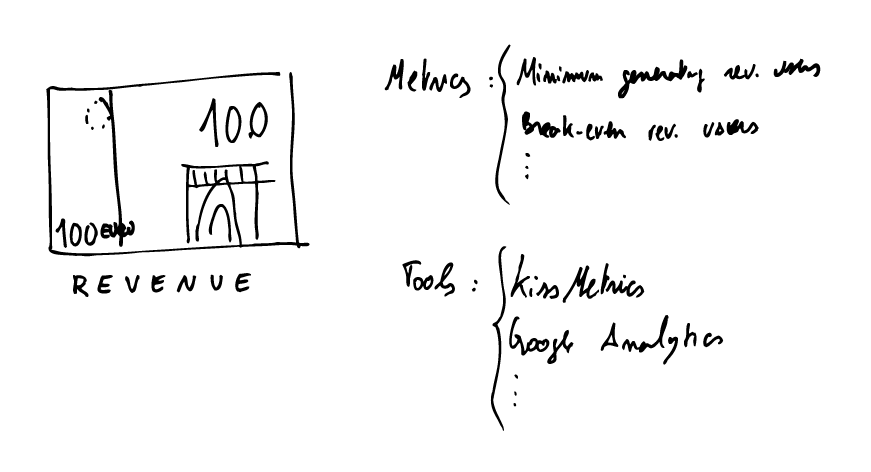 100
100 EURO
REVENUE
Metrics :
Minimum generating rev. users
Break-even rev. users
⋮
Tools :
KissMetrics
Google Analytics
⋮